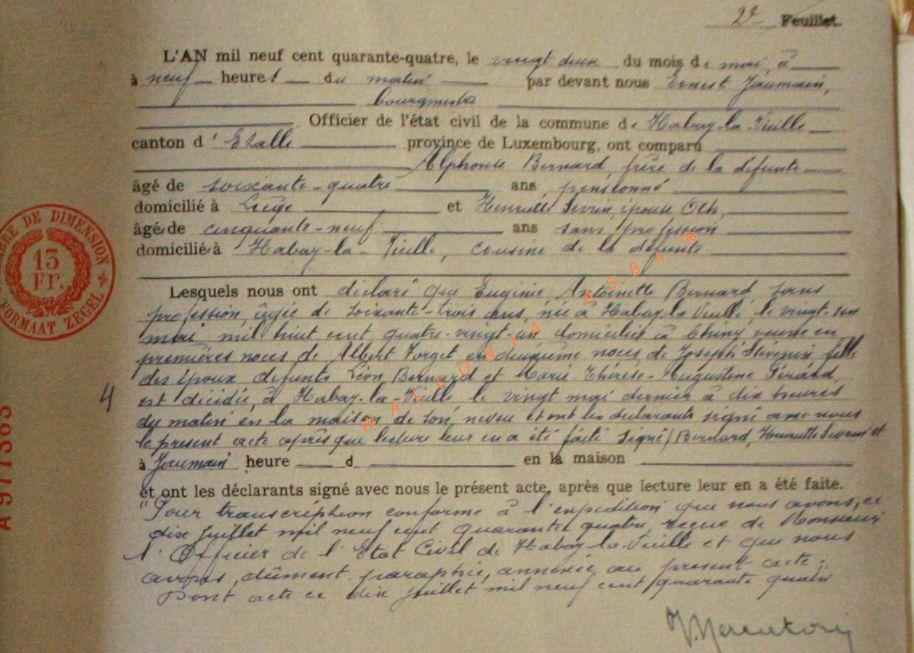 2d Feuillet.
L'AN mil neuf cent quarante-quatre, le vingt deux du mois de mai à
à neuf heures du matin par devant nous Ernest Jaumain,
bourgmestre
Officier de l'état civil de la commune de Habay-la-Vieille
canton d' Etalle province de Luxembourg, ont comparu
Alphonse Bernard, frère de la défunte
âgé de soixante-quatre ans, pensionné
domicilié à Liège et Henriette Sevrin, épouse Oth,
âgée de cinquante-neuf ans sans profession
domicilié à Habay-la-Vieille, cousine de la défunte
Lesquels nous ont déclaré que Eugénie Antoinette Bernard sans
profession âgée de soixante-trois ans, née à Habay-la-Vieille, le vingt-un
mai mil huit cent quatre-vingt-un domiciliée à Chiny veuve en
premières noces de Albert Forget en deuxième noces de Joseph Stévenin fille
des époux defunts Léon Bernard et Marie Thérèse-Augustine Girard,
4 est décédée, à Habay-la-Vieille le vingt mai dernier à dix heures
du matin en la maison de son neveu et ont les déclarants signé avec nous
le présent acte après que lecture leur en a été faite signé/Bernard, Henriette Sevrin et
à Jaumain heure d en la maison
et ont les déclarants signé avec nous le présent acte, après que lecture leur en a été faite.
"Pour transcription conforme à l'expédition que nous avons, ce
dix juillet mil neuf cent quarante quatre, reçue de Monsieur
l'Officier de l'Etat Civil de Habay-la-Vieille et que nous
avons, dûment paraphée, annexée au présent acte:
Dont acte ce dix juillet mil neuf cent quarante quatre
DE DIMENSION
13
Fr.
FORMAAT ZEGEL